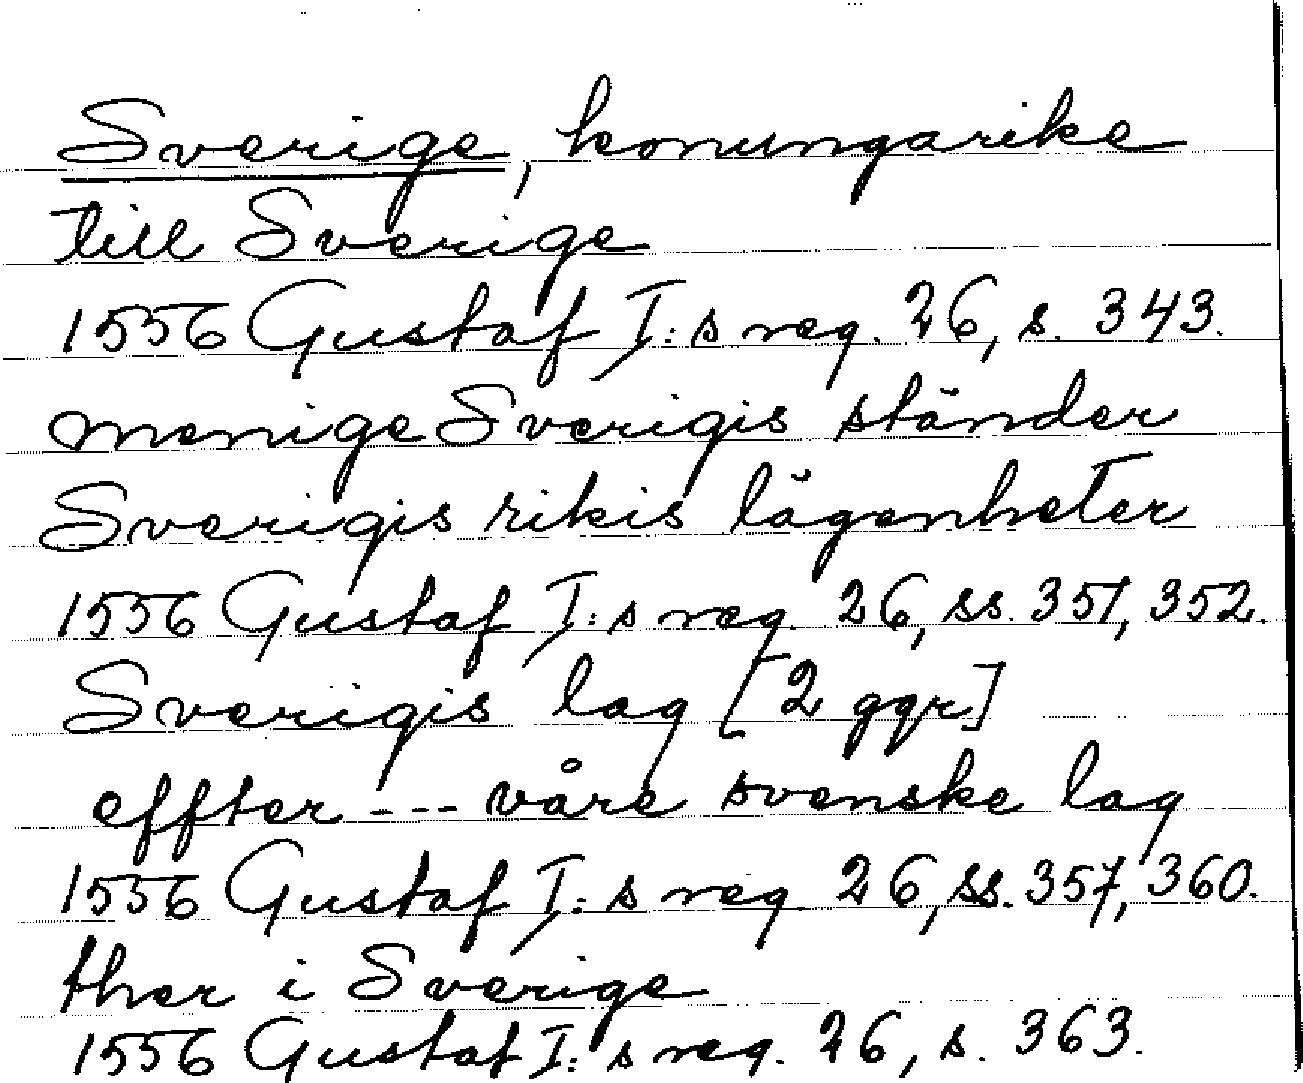 Sverige, konungarike
till Sverige
1556 Gustaf I:s reg. 26, s. 343.
menige Sverigis ständer
Sverigis rikis lägenheter
1556 Gustaf I:s reg. 26, ss. 351, 352.
Sverigis lag [2 ggr]
effter --- våre svenske lag
1556 Gustaf I:s reg. 26, ss. 357, 360.
ther i Sverige
1556 Gustaf I:s reg. 26, s. 363.